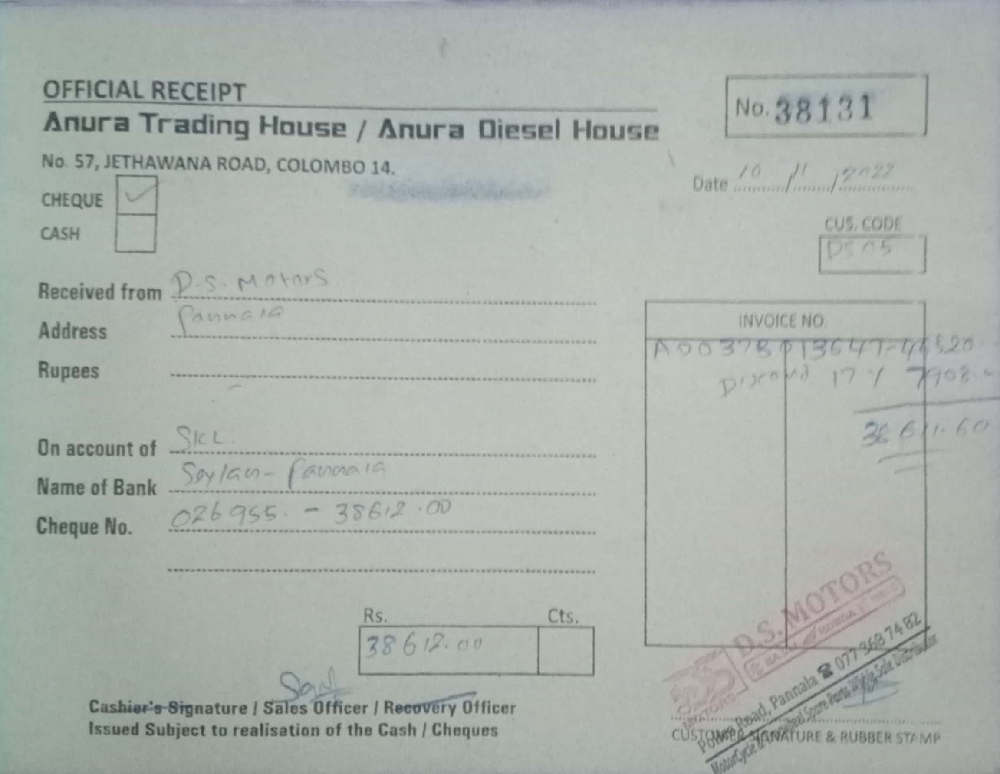 OFFICIAL RECEIPT
No. 38131
Anura Trading House / Anura Diesel House
No. 57, JETHAWANA ROAD, COLOMBO 14.
Date 10/11/2022
CHEQUE ✓
CASH
CUS. CODE
DS05
Received from D.S. Motors
Address Pannala
Rupees
INVOICE NO.
A0037B013647-46520
Discound 17% 7908.
38611.60
On account of SKL
Name of Bank Seylan - Pannala
Cheque No. 026955. - 38612.00
Rs. Cts.
38612.00
Cashier's Signature / Sales Officer / Recovery Officer
Issued Subject to realisation of the Cash / Cheques
D.S. MOTORS
MOTORS
Road, Pannala ☎ 077 368 74 82
CUSTOMER SIGNATURE & RUBBER STAMP